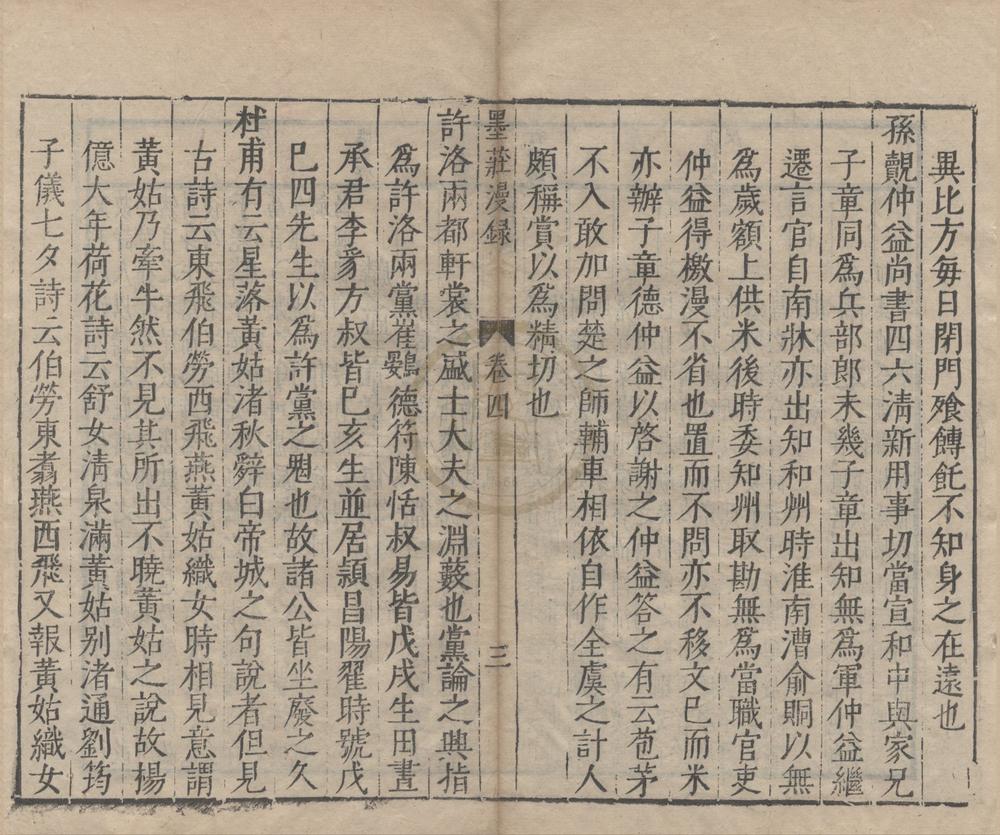 異比方每日閉門飱餺飥不知身之在遠也
孫覿仲益尚書四六清新用事切當宣和中與家兄
子章同爲兵部郎未幾子章出知無爲軍仲益繼
遷言官自南牀亦出知和州時淮南漕俞賙以無
爲歲額上供米後時委知州取勘無爲當職官吏
仲益得檄漫不省也置而不問亦不移文已而米
亦辦子童德仲益以啓謝之仲益答之有云苞茅
不入敢加問楚之師輔車相依自作全虞之計人
頗稱賞以爲精切也
墨莊漫録 卷四 三
許洛兩都軒裳之盛士大夫之淵藪也黨論之興指
爲許洛兩黨崔鷃德符陳恬叔易皆戊戌生田晝
承君李豸方叔皆巳亥生並居頴昌陽翟時號戊
巳四先生以爲許黨之魁也故諸公皆坐廢之久
杜甫有云星落黃姑渚秋辭白帝城之句說者但見
古詩云東飛伯勞西飛燕黃姑織女時相見意謂
黃姑乃牽牛然不見其所出不曉黃姑之說故楊
億大年荷花詩云舒女清泉滿黃姑别渚通劉筠
子儀七夕詩云伯勞東翥燕西飛又報黃姑織女